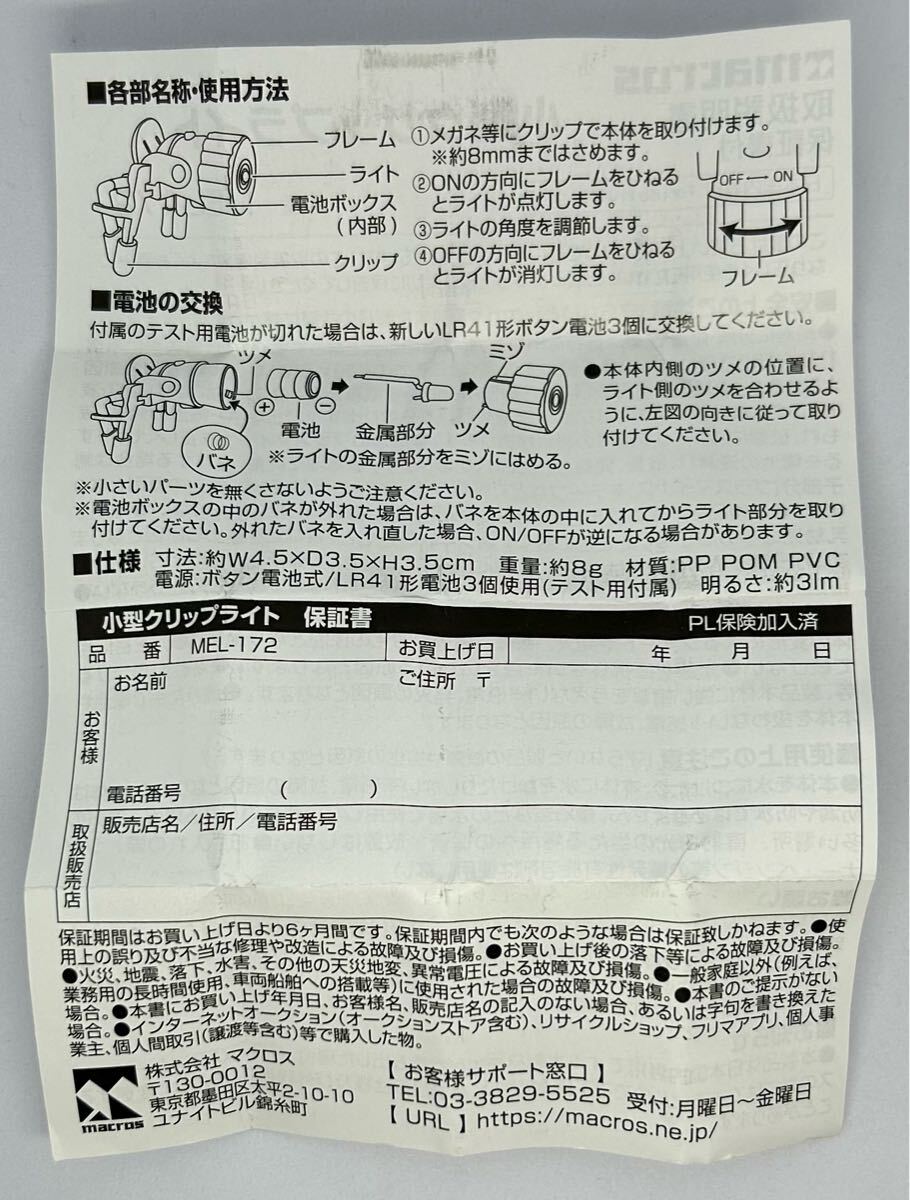 ■各部名称・使用方法
フレーム
ライト
電池ボックス
(内部)
クリップ
①メガネ等にクリップで本体を取り付けます。
※約8mmまではさめます。
②ONの方向にフレームをひねる
とライトが点灯します。
③ライトの角度を調節します。
④OFFの方向にフレームをひねる
とライトが消灯します。
OFF ←→ ON
フレーム
■電池の交換
付属のテスト用電池が切れた場合は、新しいLR41形ボタン電池3個に交換してください。
ツメ
ミゾ
⊕
⊖
電池
金属部分
ツメ
バネ
※ライトの金属部分をミゾにはめる。
●本体内側のツメの位置に、
ライト側のツメを合わせるよ
うに、左図の向きに従って取り
付けてください。
※小さいパーツを無くさないようご注意ください。
※電池ボックスの中のバネが外れた場合は、バネを本体の中に入れてからライト部分を取り
付けてください。外れたバネを入れ直した場合、ON/OFFが逆になる場合があります。
■仕様 寸法:約W4.5×D3.5×H3.5cm 重量:約8g 材質:PP POM PVC
電源:ボタン電池式/LR41形電池3個使用(テスト用付属) 明るさ:約3lm
小型クリップライト 保証書 PL保険加入済
品 番 MEL-172 お買上げ日 年 月 日
お客様
お名前
ご住所 〒
電話番号 ( )
取扱販売店
販売店名/住所/電話番号
保証期間はお買い上げ日より6ヶ月間です。保証期間内でも次のような場合は保証致しかねます。●使
用上の誤り及び不当な修理や改造による故障及び損傷。●お買い上げ後の落下等による故障及び損傷。
●火災、地震、落下、水害、その他の天災地変、異常電圧による故障及び損傷。●一般家庭以外(例えば、
業務用の長時間使用、車両船舶への搭載等)に使用された場合の故障及び損傷。●本書のご提示がない
場合。●本書にお買い上げ年月日、お客様名、販売店名の記入のない場合、あるいは字句を書き換えた
場合。●インターネットオークション(オークションストア含む)、リサイクルショップ、フリマアプリ、個人事
業主、個人間取引(譲渡等含む)等で購入した物。
macros
株式会社 マクロス
〒130-0012
東京都墨田区太平2-10-10
ユナイトビル錦糸町
【 お客様サポート窓口 】
TEL:03-3829-5525 受付:月曜日〜金曜日
【 URL 】https://macros.ne.jp/